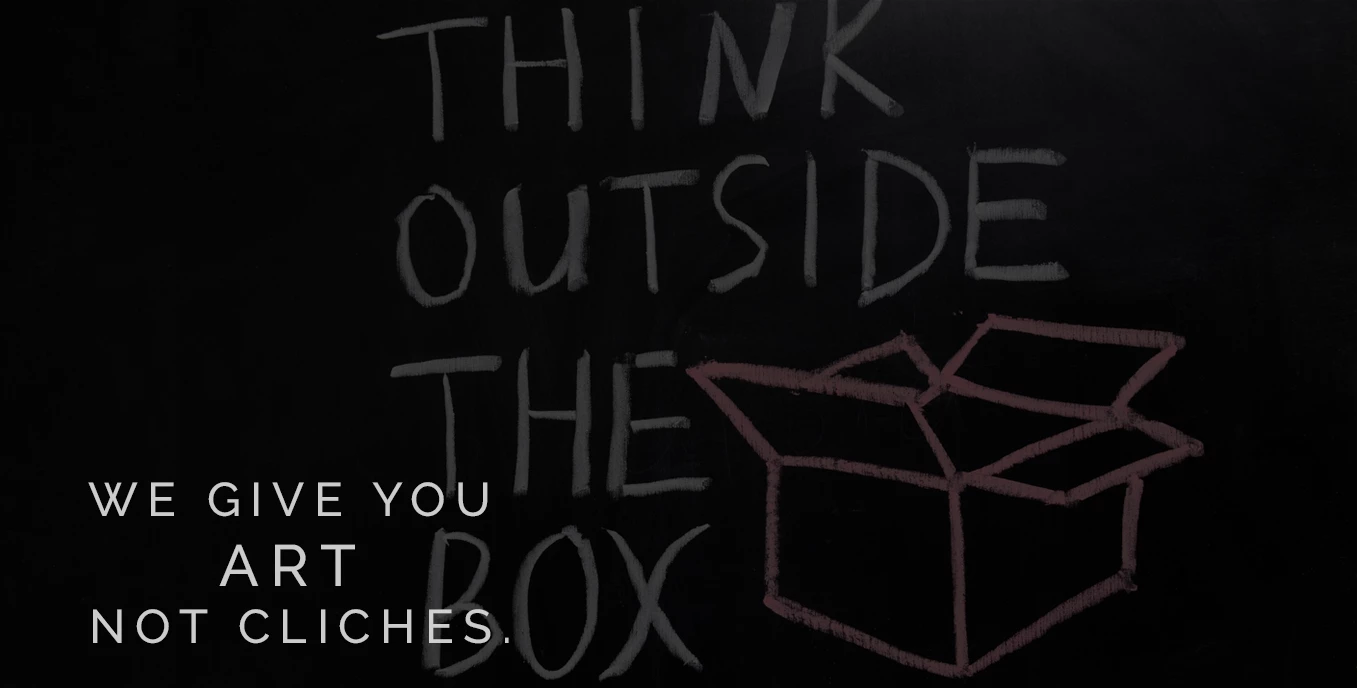 THINK
OUTSIDE
THE
BOX
WE GIVE YOU
ART
NOT CLICHES.